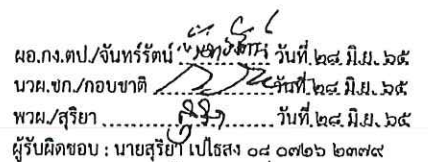 ผอ.กง.ตป./จันทร์รัตน์ วันที่ ๒๘ มิ.ย. ๖๕
นวผ.ชก./กอบชาติ วันที่ ๒๘ มิ.ย. ๖๕
พวผ./สุริยา ............ วันที่ ๒๘ มิ.ย. ๖๕
ผู้รับผิดชอบ : นายสุริยา เปไธสง ๐๘ ๐๗๒๖ ๒๓๗๙